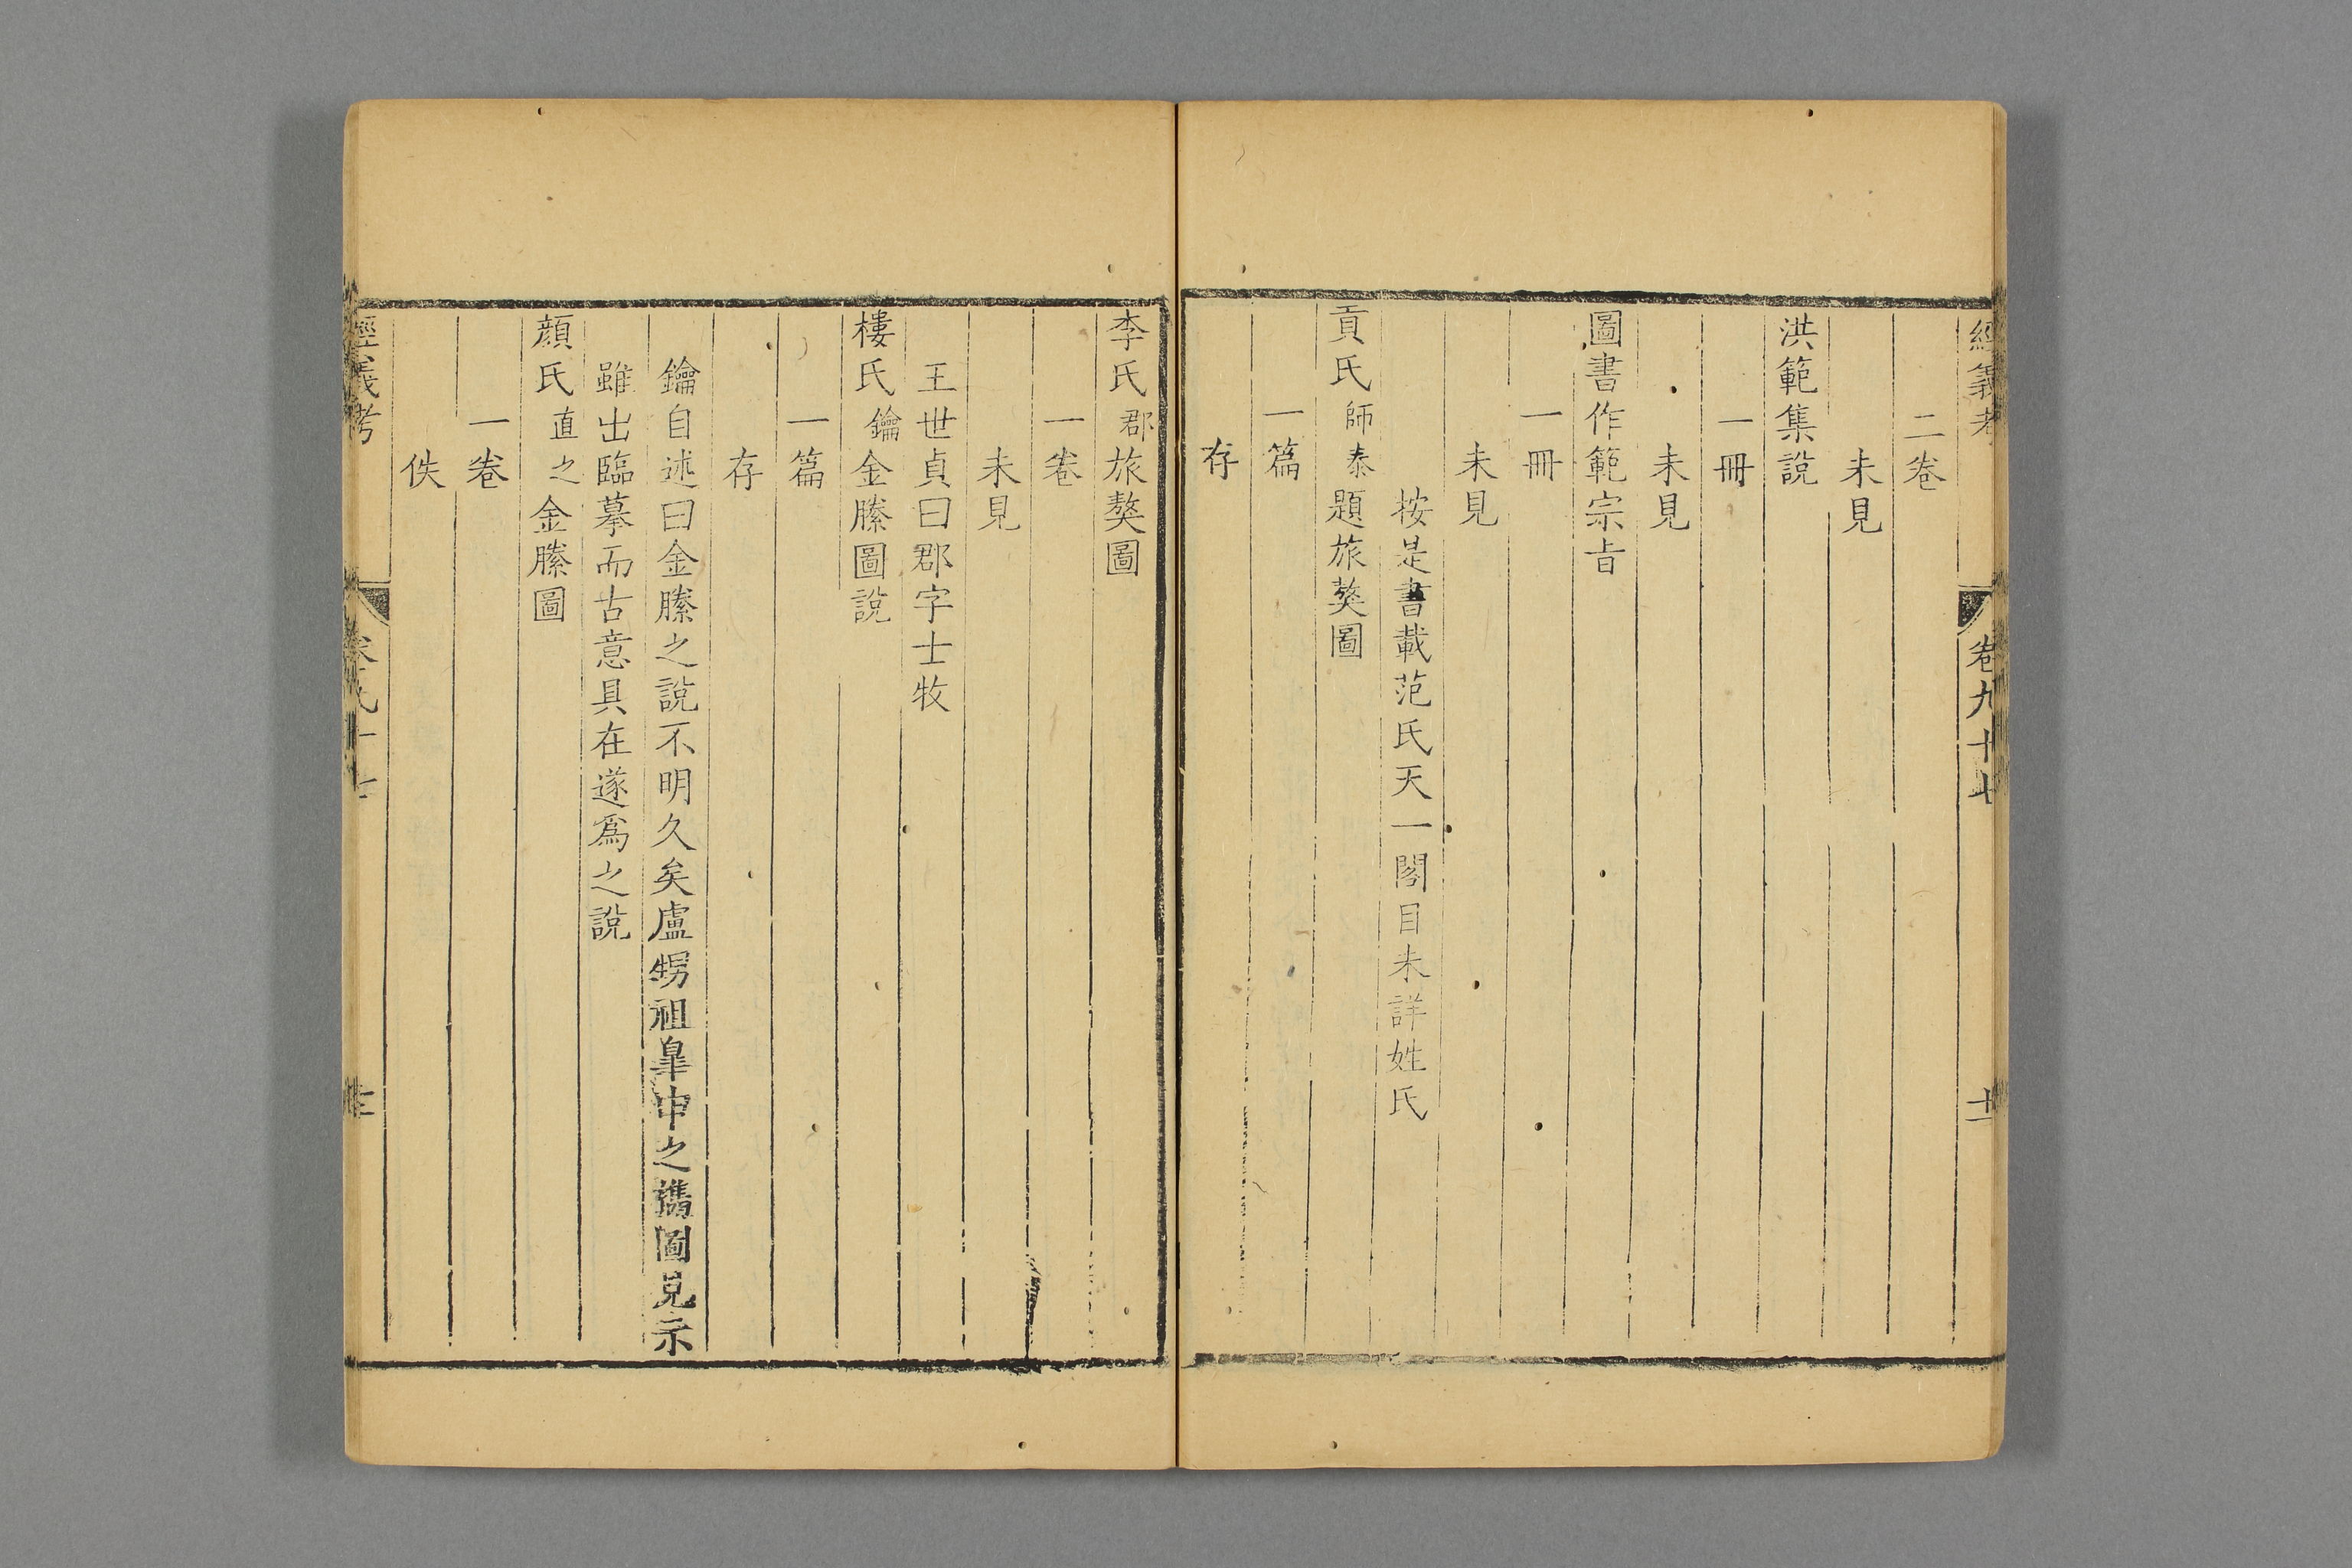 經義考
卷九十七
十二
二卷
未見
洪範集說
一冊
未見
圖書作範宗旨
一冊
未見
按是書載范氏天一閣目未詳姓氏
貢氏師泰題旅獒圖
一篇
存
李氏郡旅獒圖
一卷
未見
王世貞曰郡字士牧
樓氏鑰金縢圖說
一篇
存
鑰自述曰金縢之說不明久矣盧甥祖臯申之攜圖見示
雖出臨摹而古意具在遂爲之說
顏氏直之金縢圖
一卷
佚
經義考